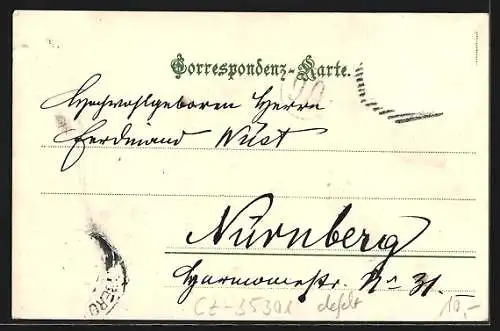 Correspondenz-Karte.
Hochwohlgeboren Herrn
Ferdinand Wüst
Nürnberg
No 31.
Cz-35301 defekt 10,-